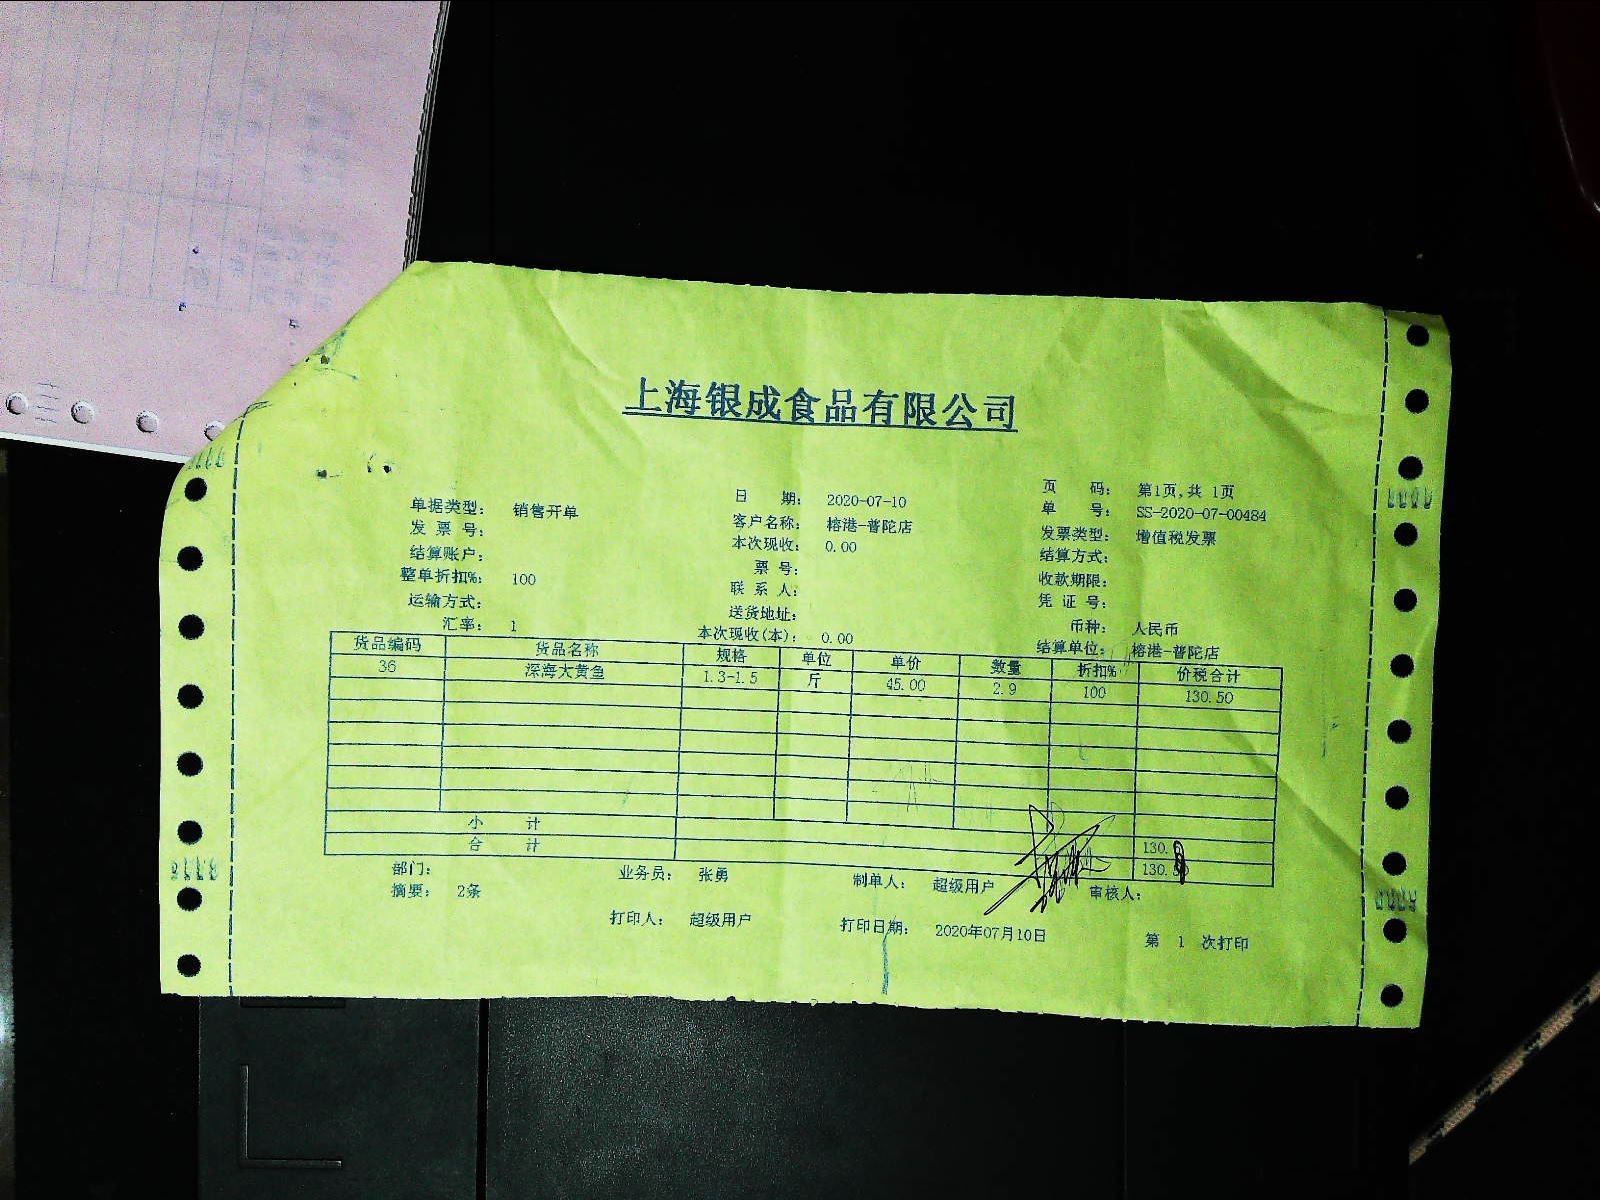 上海银成食品有限公司
单据类型： 销售开单 日 期： 2020-07-10 页 码： 第1页,共 1页
发 票 号： 客户名称： 榕港-普陀店 单 号： SS-2020-07-00484
结算账户： 本次现收： 0.00 发票类型： 增值税发票
整单折扣%： 100 票 号： 结算方式：
运输方式： 联 系 人： 收款期限：
汇率： 1 送货地址： 凭 证 号：
本次现收(本)： 0.00 币种： 人民币
结算单位： 榕港-普陀店
货品编码 货品名称 规格 单位 单价 数量 折扣% 价税合计
36 深海大黄鱼 1.3-1.5 斤 45.00 2.9 100 130.50
小 计 130.
合 计 130.
部门： 业务员： 张勇 制单人： 超级用户 审核人：
摘要： 2条
打印人： 超级用户 打印日期： 2020年07月10日 第 1 次打印